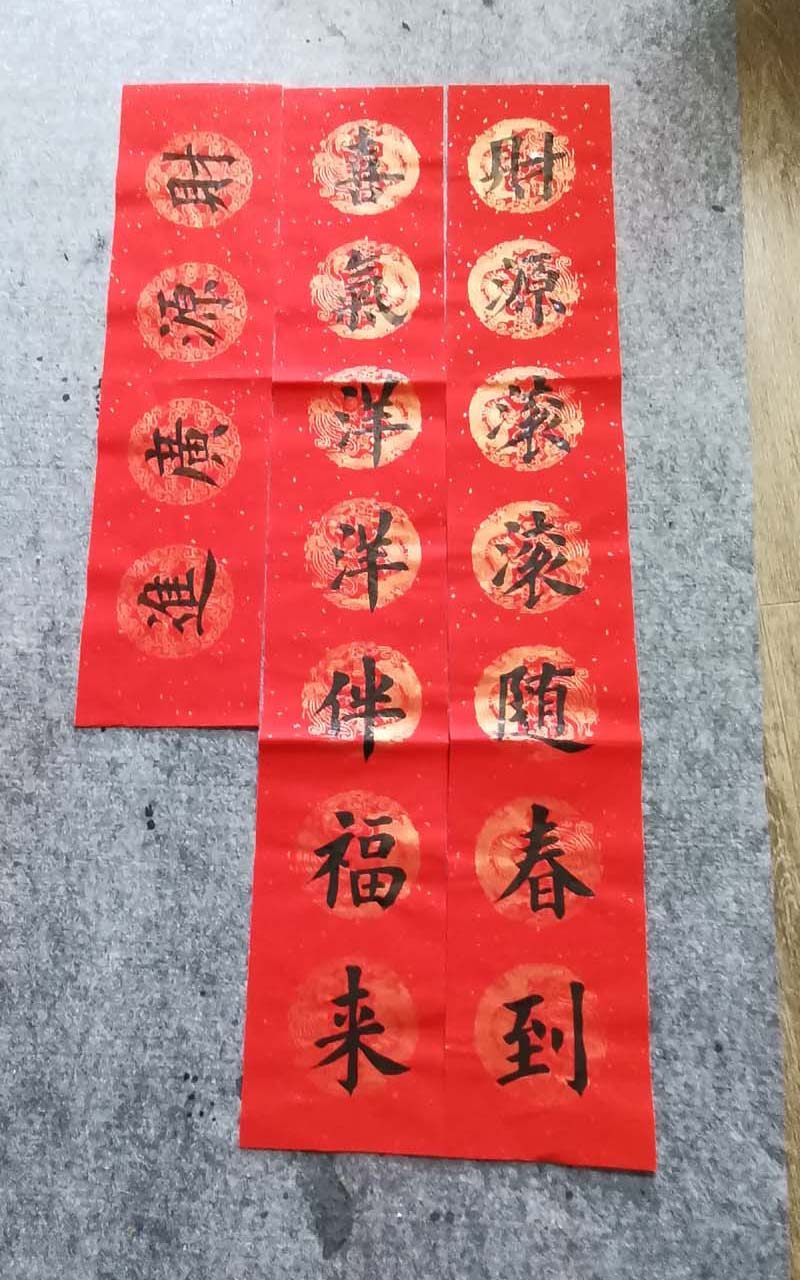 財源滚滚随春到
喜氣洋洋伴福来
財源廣進